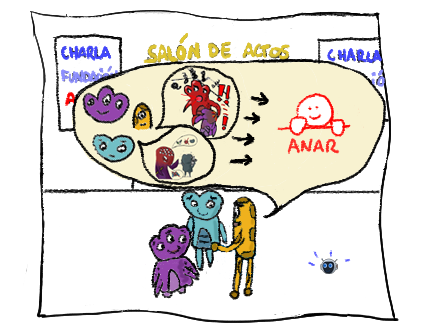 CHARLA
FUNDACIÓN
SALÓN DE ACTOS
CHARLA
ANAR